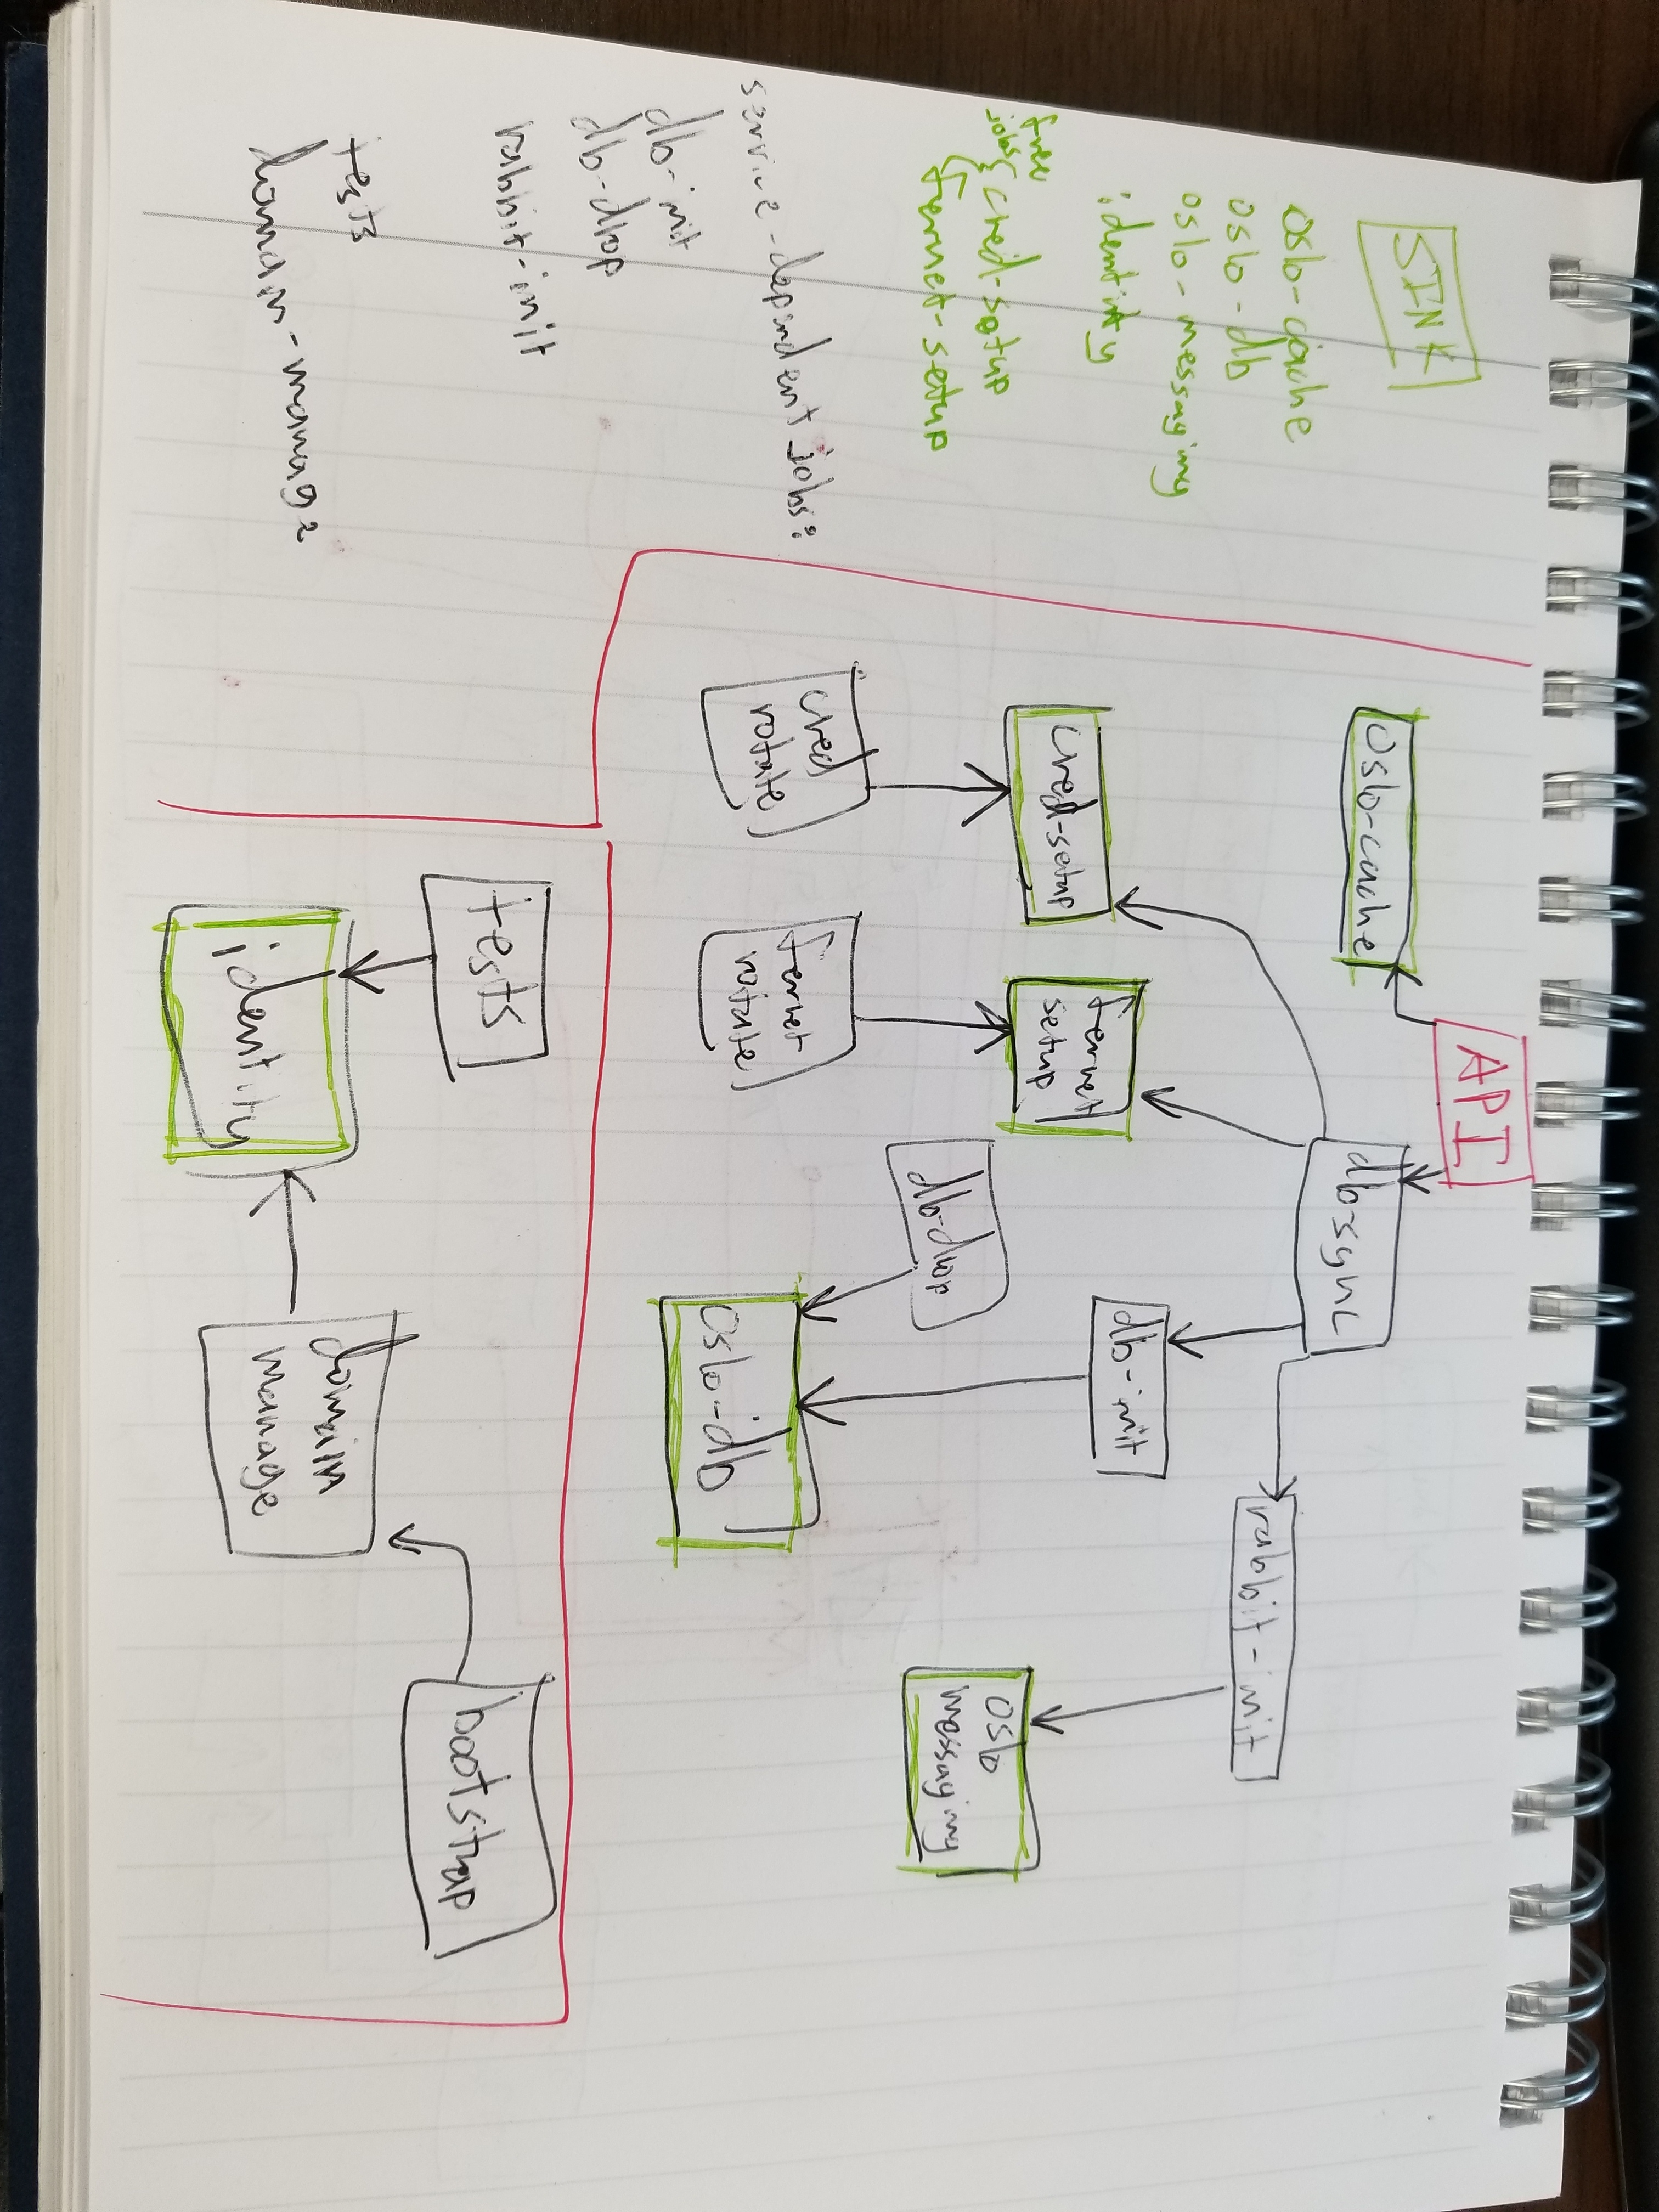 SINK
oslo-cache
oslo-db
oslo-messaging
identity
free
jobs { cred-setup
fernet-setup
service-dependent jobs:
db-init
db-drop
rabbit-init
tests
domain-manage
API
oslo-cache
db-sync
cred-setup
fernet
setup
db-init
rabbit-init
cred
rotate
fernet
rotate
db-drop
oslo-db
oslo
messaging
tests
identity
domain
manage
bootstrap